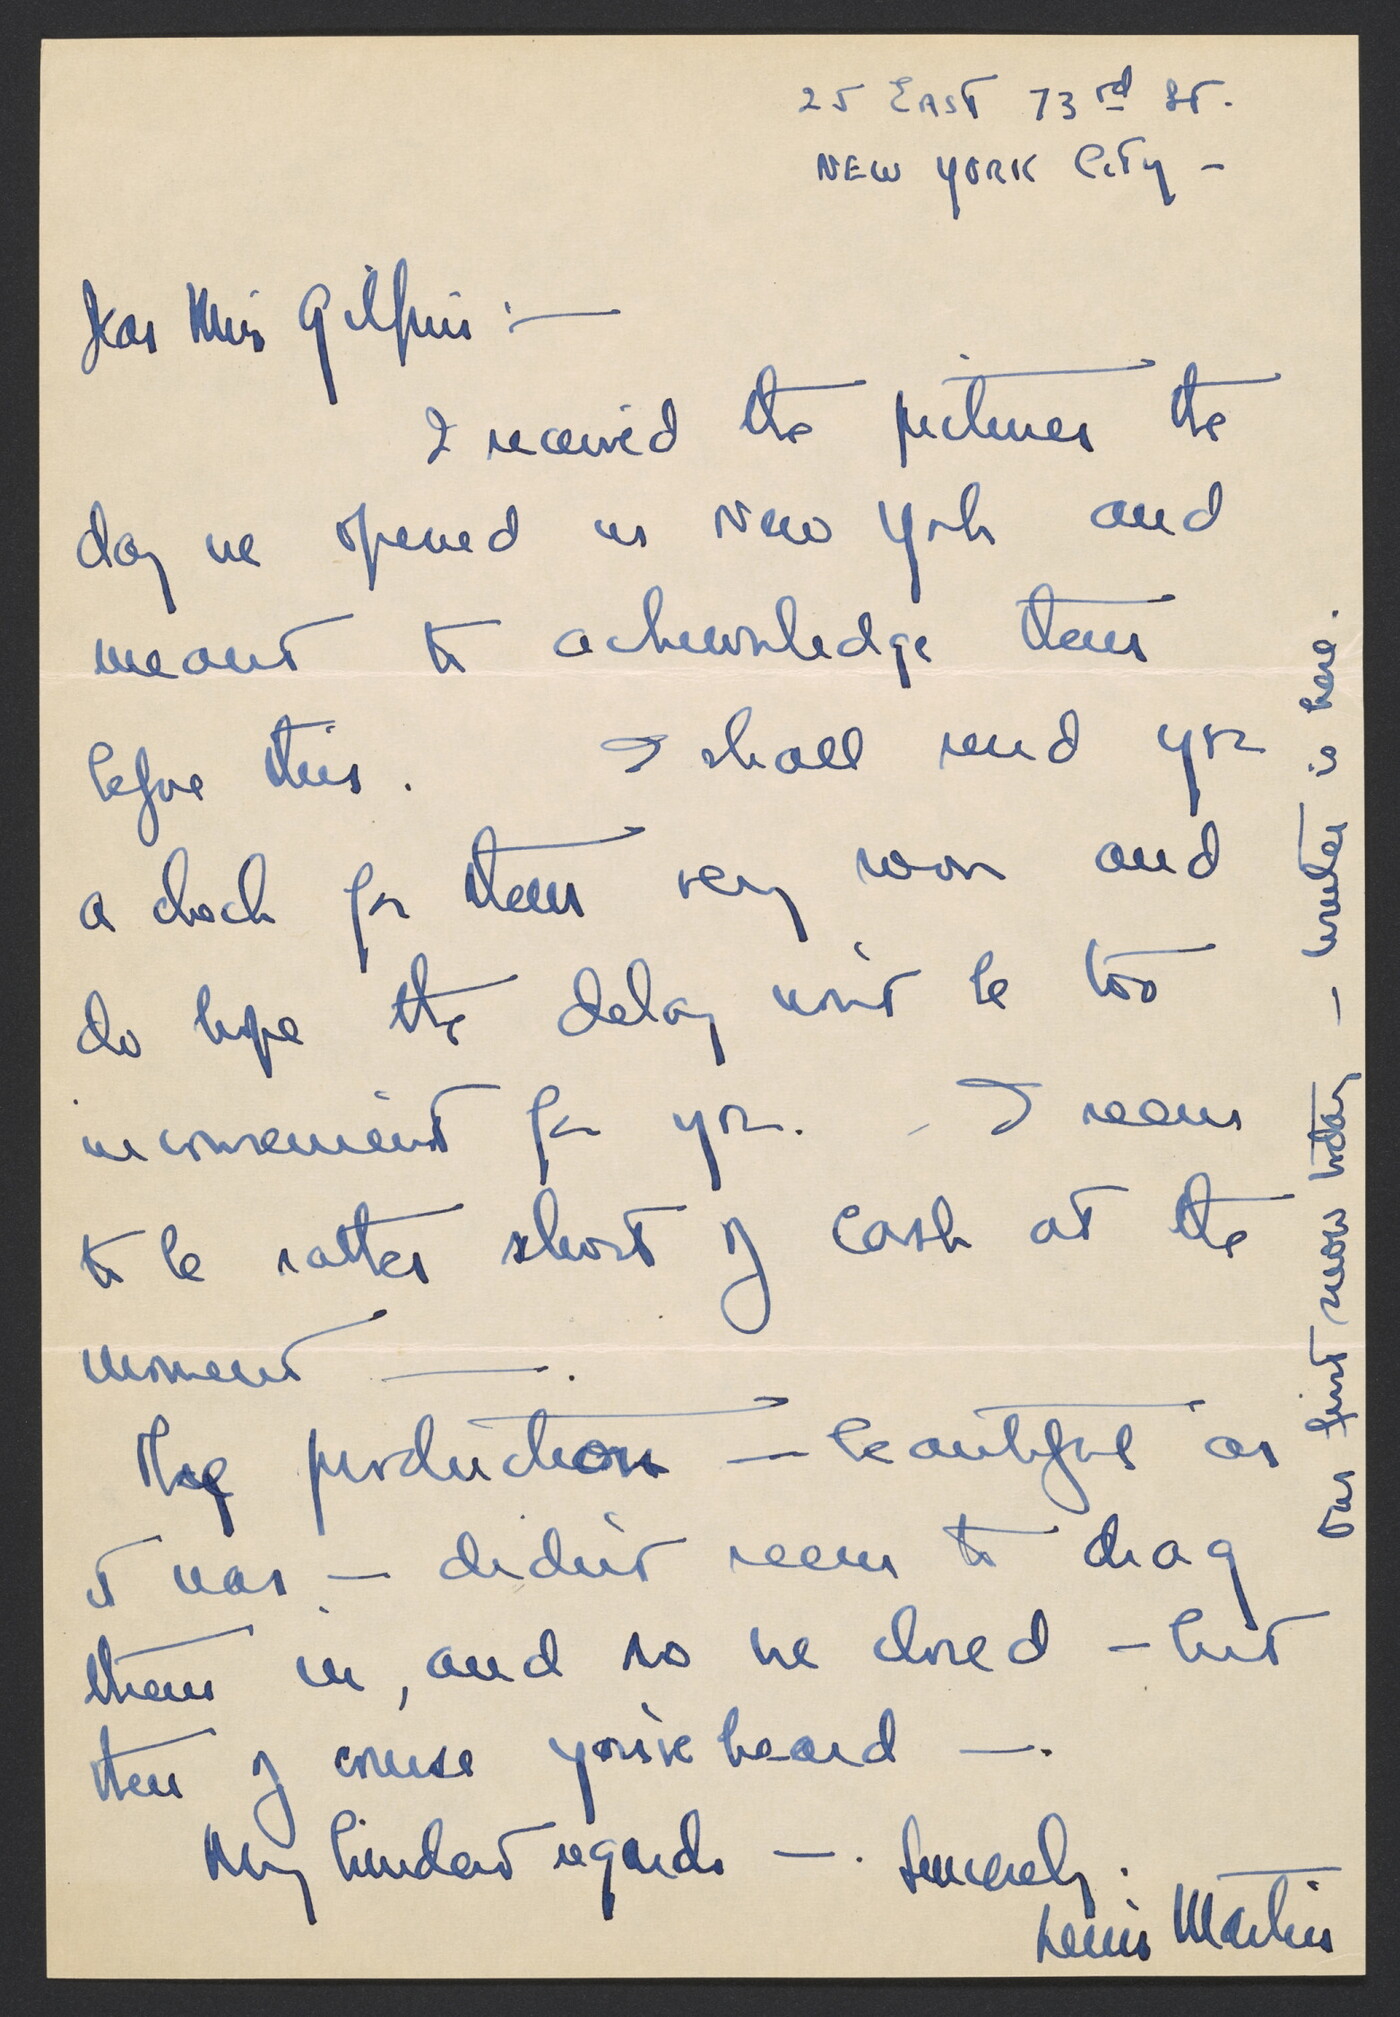 25 EAST 73rd ST.
NEW YORK City –
Dear Miss Gilpin :—
I received the pictures the
day we opened in New York and
meant to acknowledge them
before this. I shall send you
a check for them very soon and
do hope the delay won't be too
inconvenient for you. – I seem
to be rather short of cash at the
moment —.
The production – beautiful as
it was – didn't seem to drag
them in, and so we closed – but
then of course you've heard —.
My kindest regards —. Sincerely.
Martin
Our first snow today – winter is here.